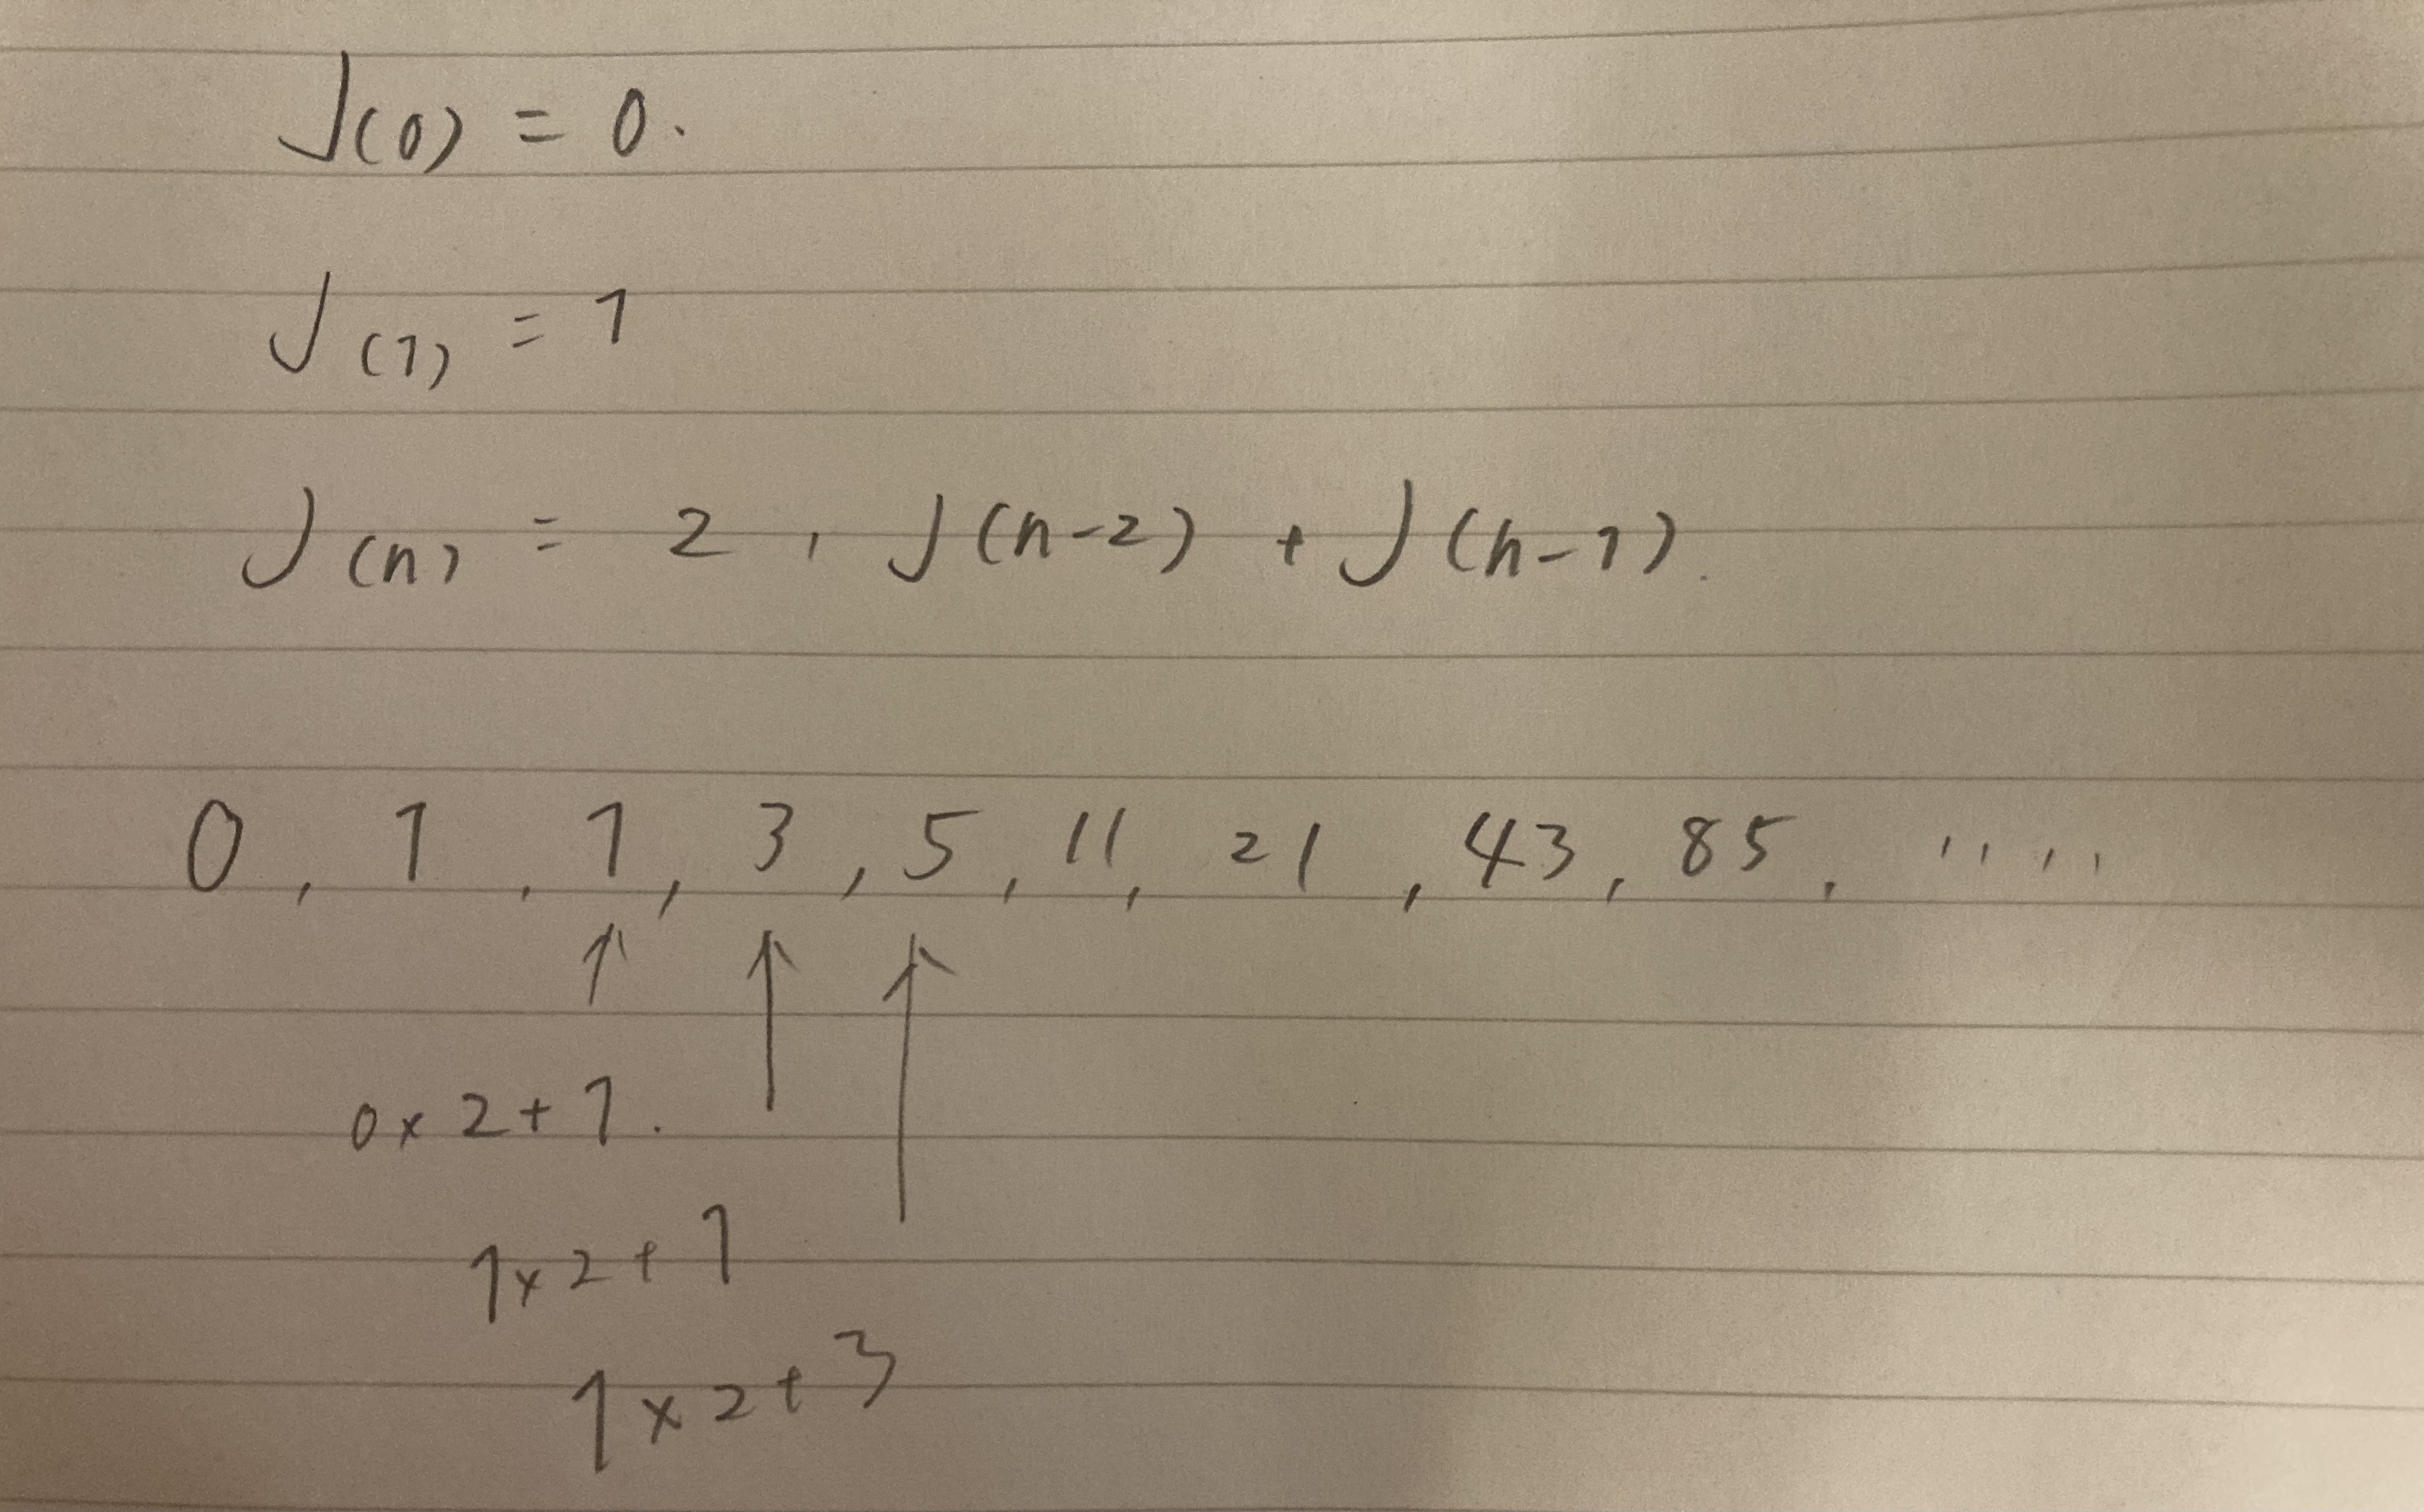 J(0) = 0.
J(1) = 1
J(n) = 2 · J(n-2) + J(n-1).
0, 1, 1, 3, 5, 11, 21, 43, 85, ....
0 × 2 + 1.
1 × 2 + 1
1 × 2 + 3